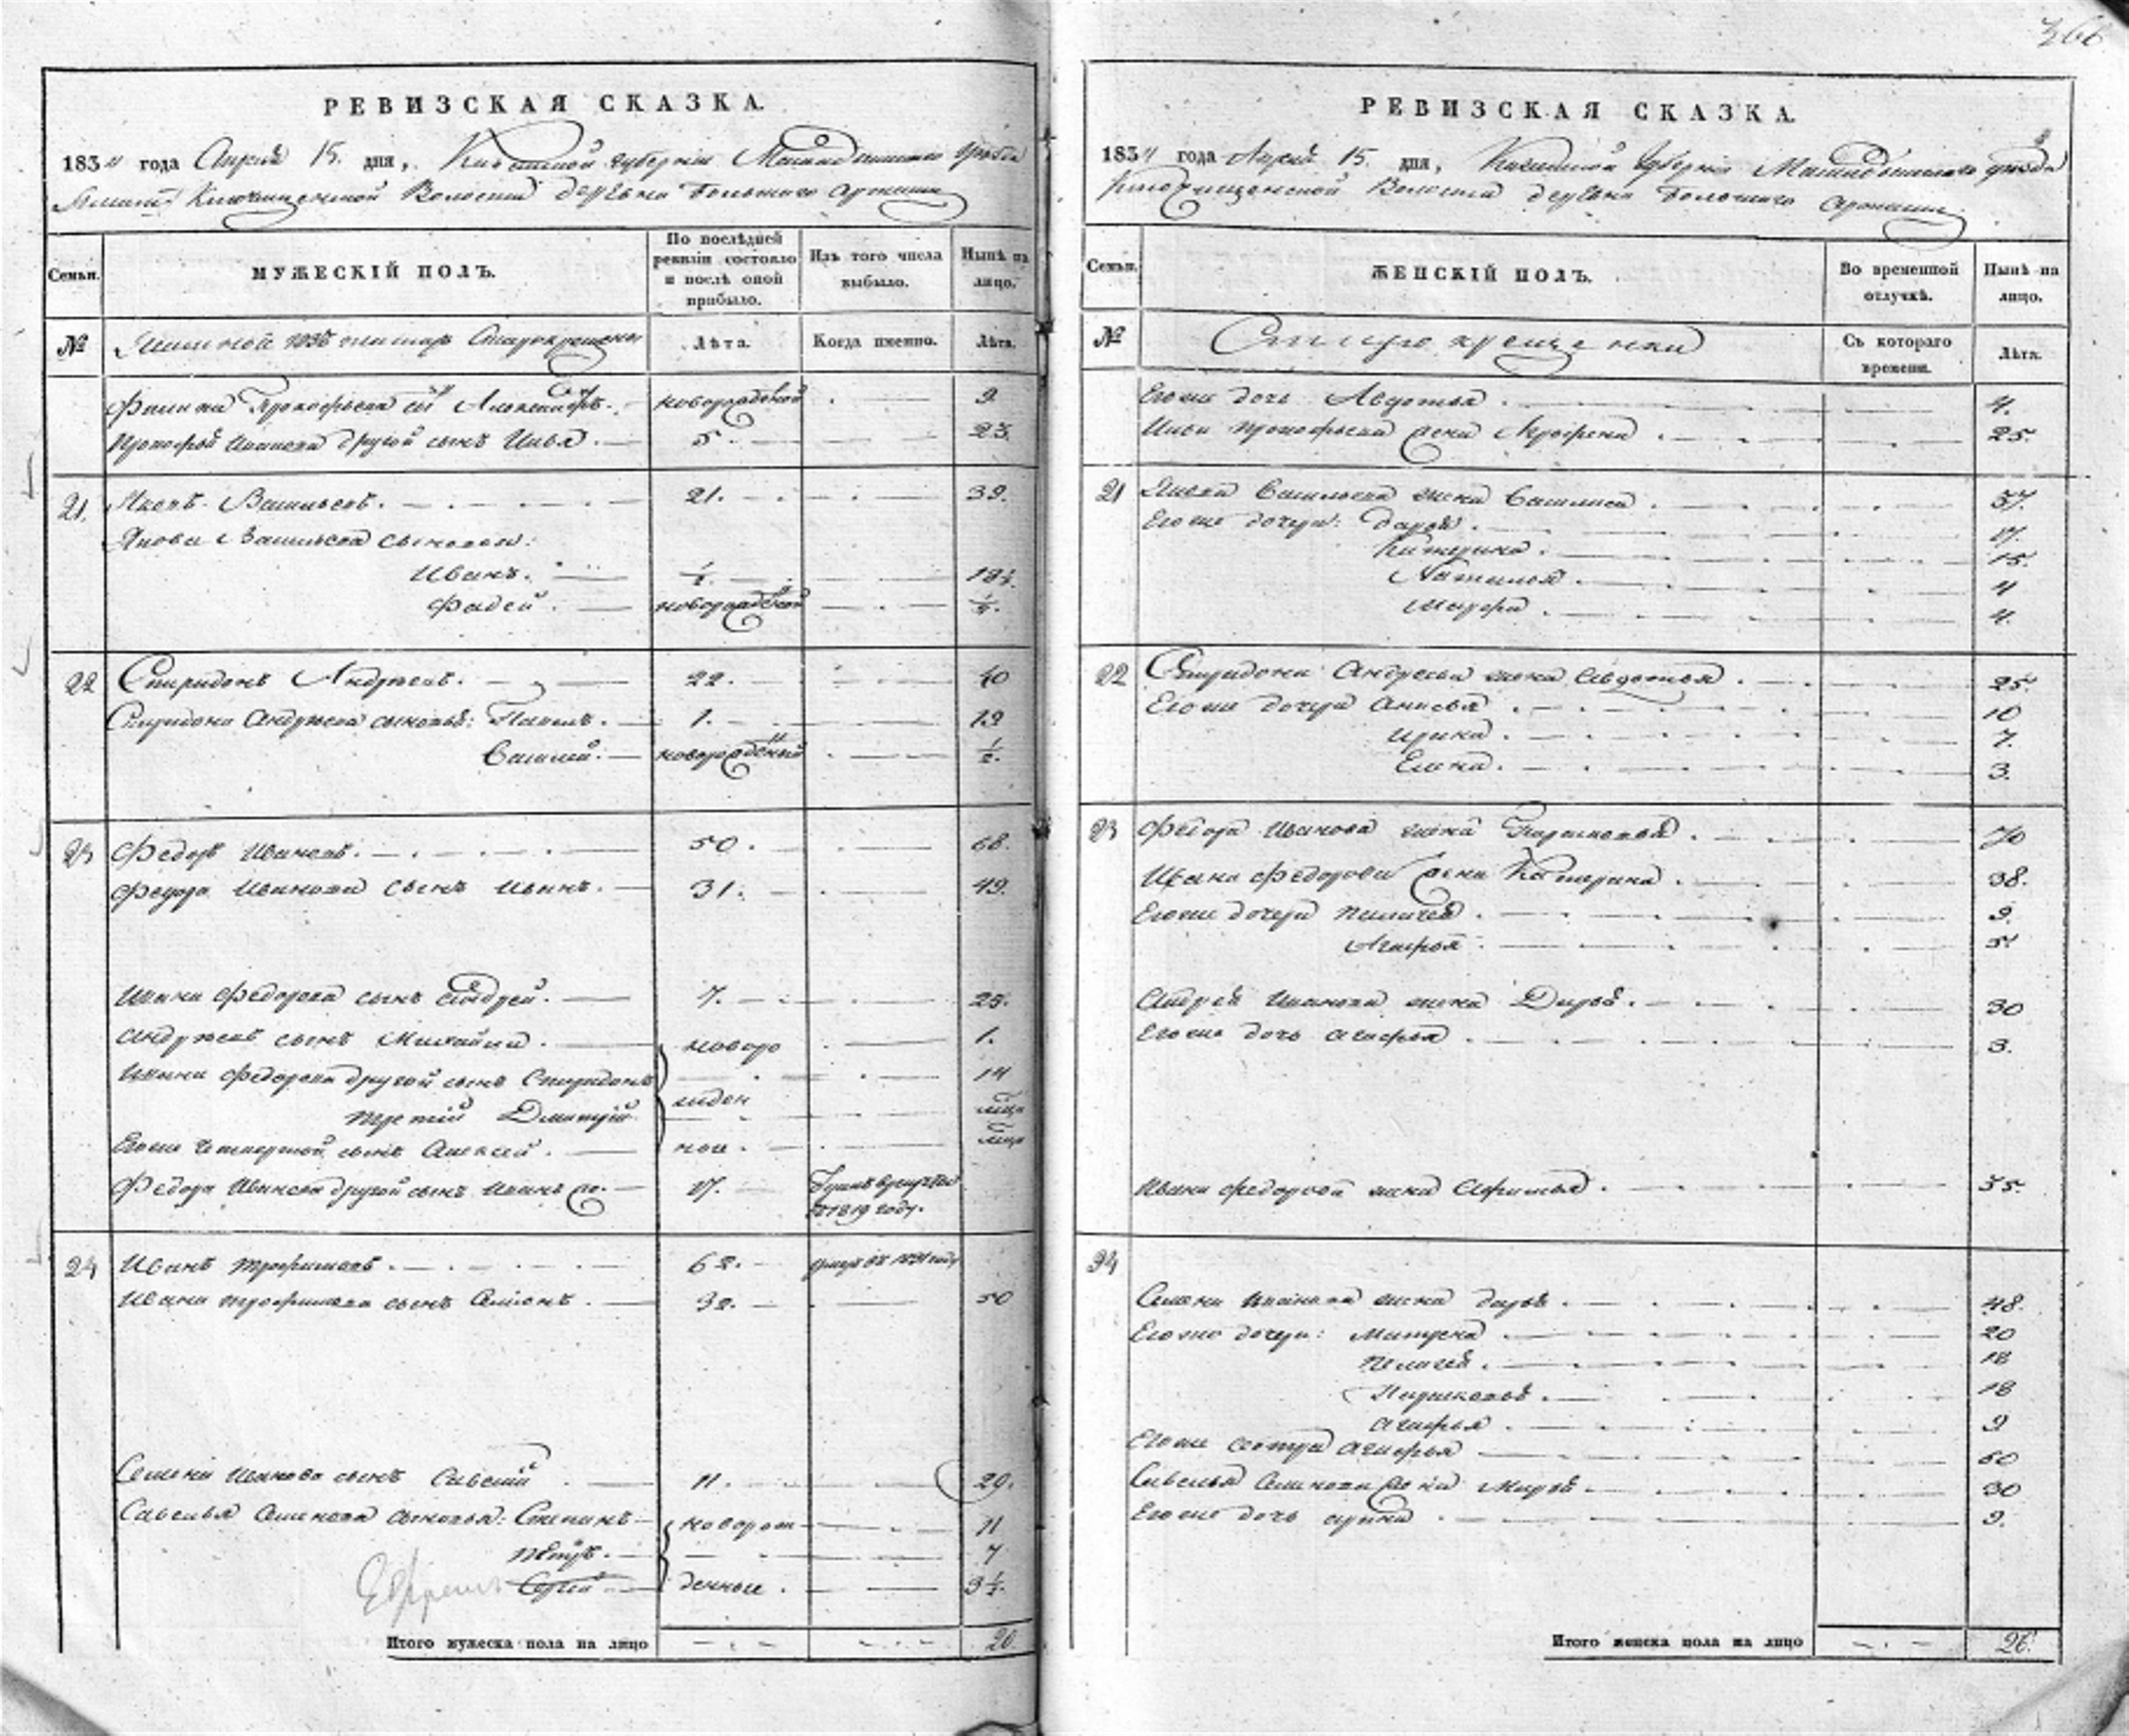 366
РЕВИЗСКАЯ СКАЗКА.
1834 года Апреля 15. дня, Казанской губернии Мамадышского уезда
Ключищенской Волости деревни Большого Арташа
Семьи.
МУЖЕСКІЙ ПОЛЪ.
По послѣдней ревизіи состояло и послѣ оной прибыло.
Изъ того числа выбыло.
Нынѣ на лицо.
№
Лѣта.
Когда именно.
Лѣта.
Филипа Прокофьева сынъ Александръ. новорожденной 9
Прокофья Иванова другой сынъ Илья. 5. 23.
21. Яковъ Васильевъ. 21. 39.
Якова Васильева сыновья:
Иванъ. ½. 18½.
Фадей. новорожденной ½.
22 Спиридонъ Андреевъ. 22. 40
Спиридона Андреева сыновья: Павелъ. 1. 19
Василей. новорожденный ½.
23 Федоръ Ивановъ. 50. 68.
Федора Иванова сынъ Иванъ. 31. 49.
Ивана Федорова сынъ Андрей. 7. 25.
Андреевъ сынъ Михайла. новоро 1.
Ивана Федорова другой сынъ Спиридонъ 14
третий Дмитрий жден
Егоже четвертой сынъ Алексей. ной.
Федора Иванова другой сынъ Иванъ 17. въ 1819 году.
24 Иванъ Трофимовъ. 62. умеръ въ 1831 году
Ивана Трофимова сынъ Семенъ. 32. 50
Семена Иванова сынъ Савелий 11. 29.
Савелья Семенова сыновья: Степанъ новорож 11
Петръ. 7
Ефремъ Сергей денные. 3½.
Итого мужеска пола на лицо 20.
РЕВИЗСКАЯ СКАЗКА.
1834 года Апреля 15. дня, Казанской Губернии Мамадышского уезда
Ключищенской Волости деревни Большого Арташа
Семьи.
ЖЕНСКІЙ ПОЛЪ.
Во временной отлучкѣ.
Нынѣ на лицо.
№
Старокрещенки
Съ котораго времени.
Лѣта.
Егоже дочь Авдотья. 4.
Ильи Прокофьева жена Аграфена. 25.
21 Якова Васильева жена Василиса. 37.
Егоже дочери: Дарья. 17.
Катерина. 15.
Наталья. 4
Марфа. 4.
22 Спиридона Андреева жена Авдотья. 25.
Егоже дочери Анисья. 10
Ирина. 7.
Елена. 3.
23 Федора Иванова жена Парасковья. 70
Ивана Федорова жена Катерина. 38.
Егоже дочери Пелагея. 9.
Агафья. 5.
Андрея Иванова жена Дарья. 30
Егоже дочь Агафья. 3.
Ивана Федорова жена Афимья. 35.
24
Семена Иванова жена Дарья. 48.
Егоже дочери: Матрена 20
Пелагея. 18
Парасковья. 18
Агафья. 9
Егоже сестра Агафья 60
Савелья Семенова жена Марья. 30
Егоже дочь Арина. 9.
Итого женска пола на лицо 26.